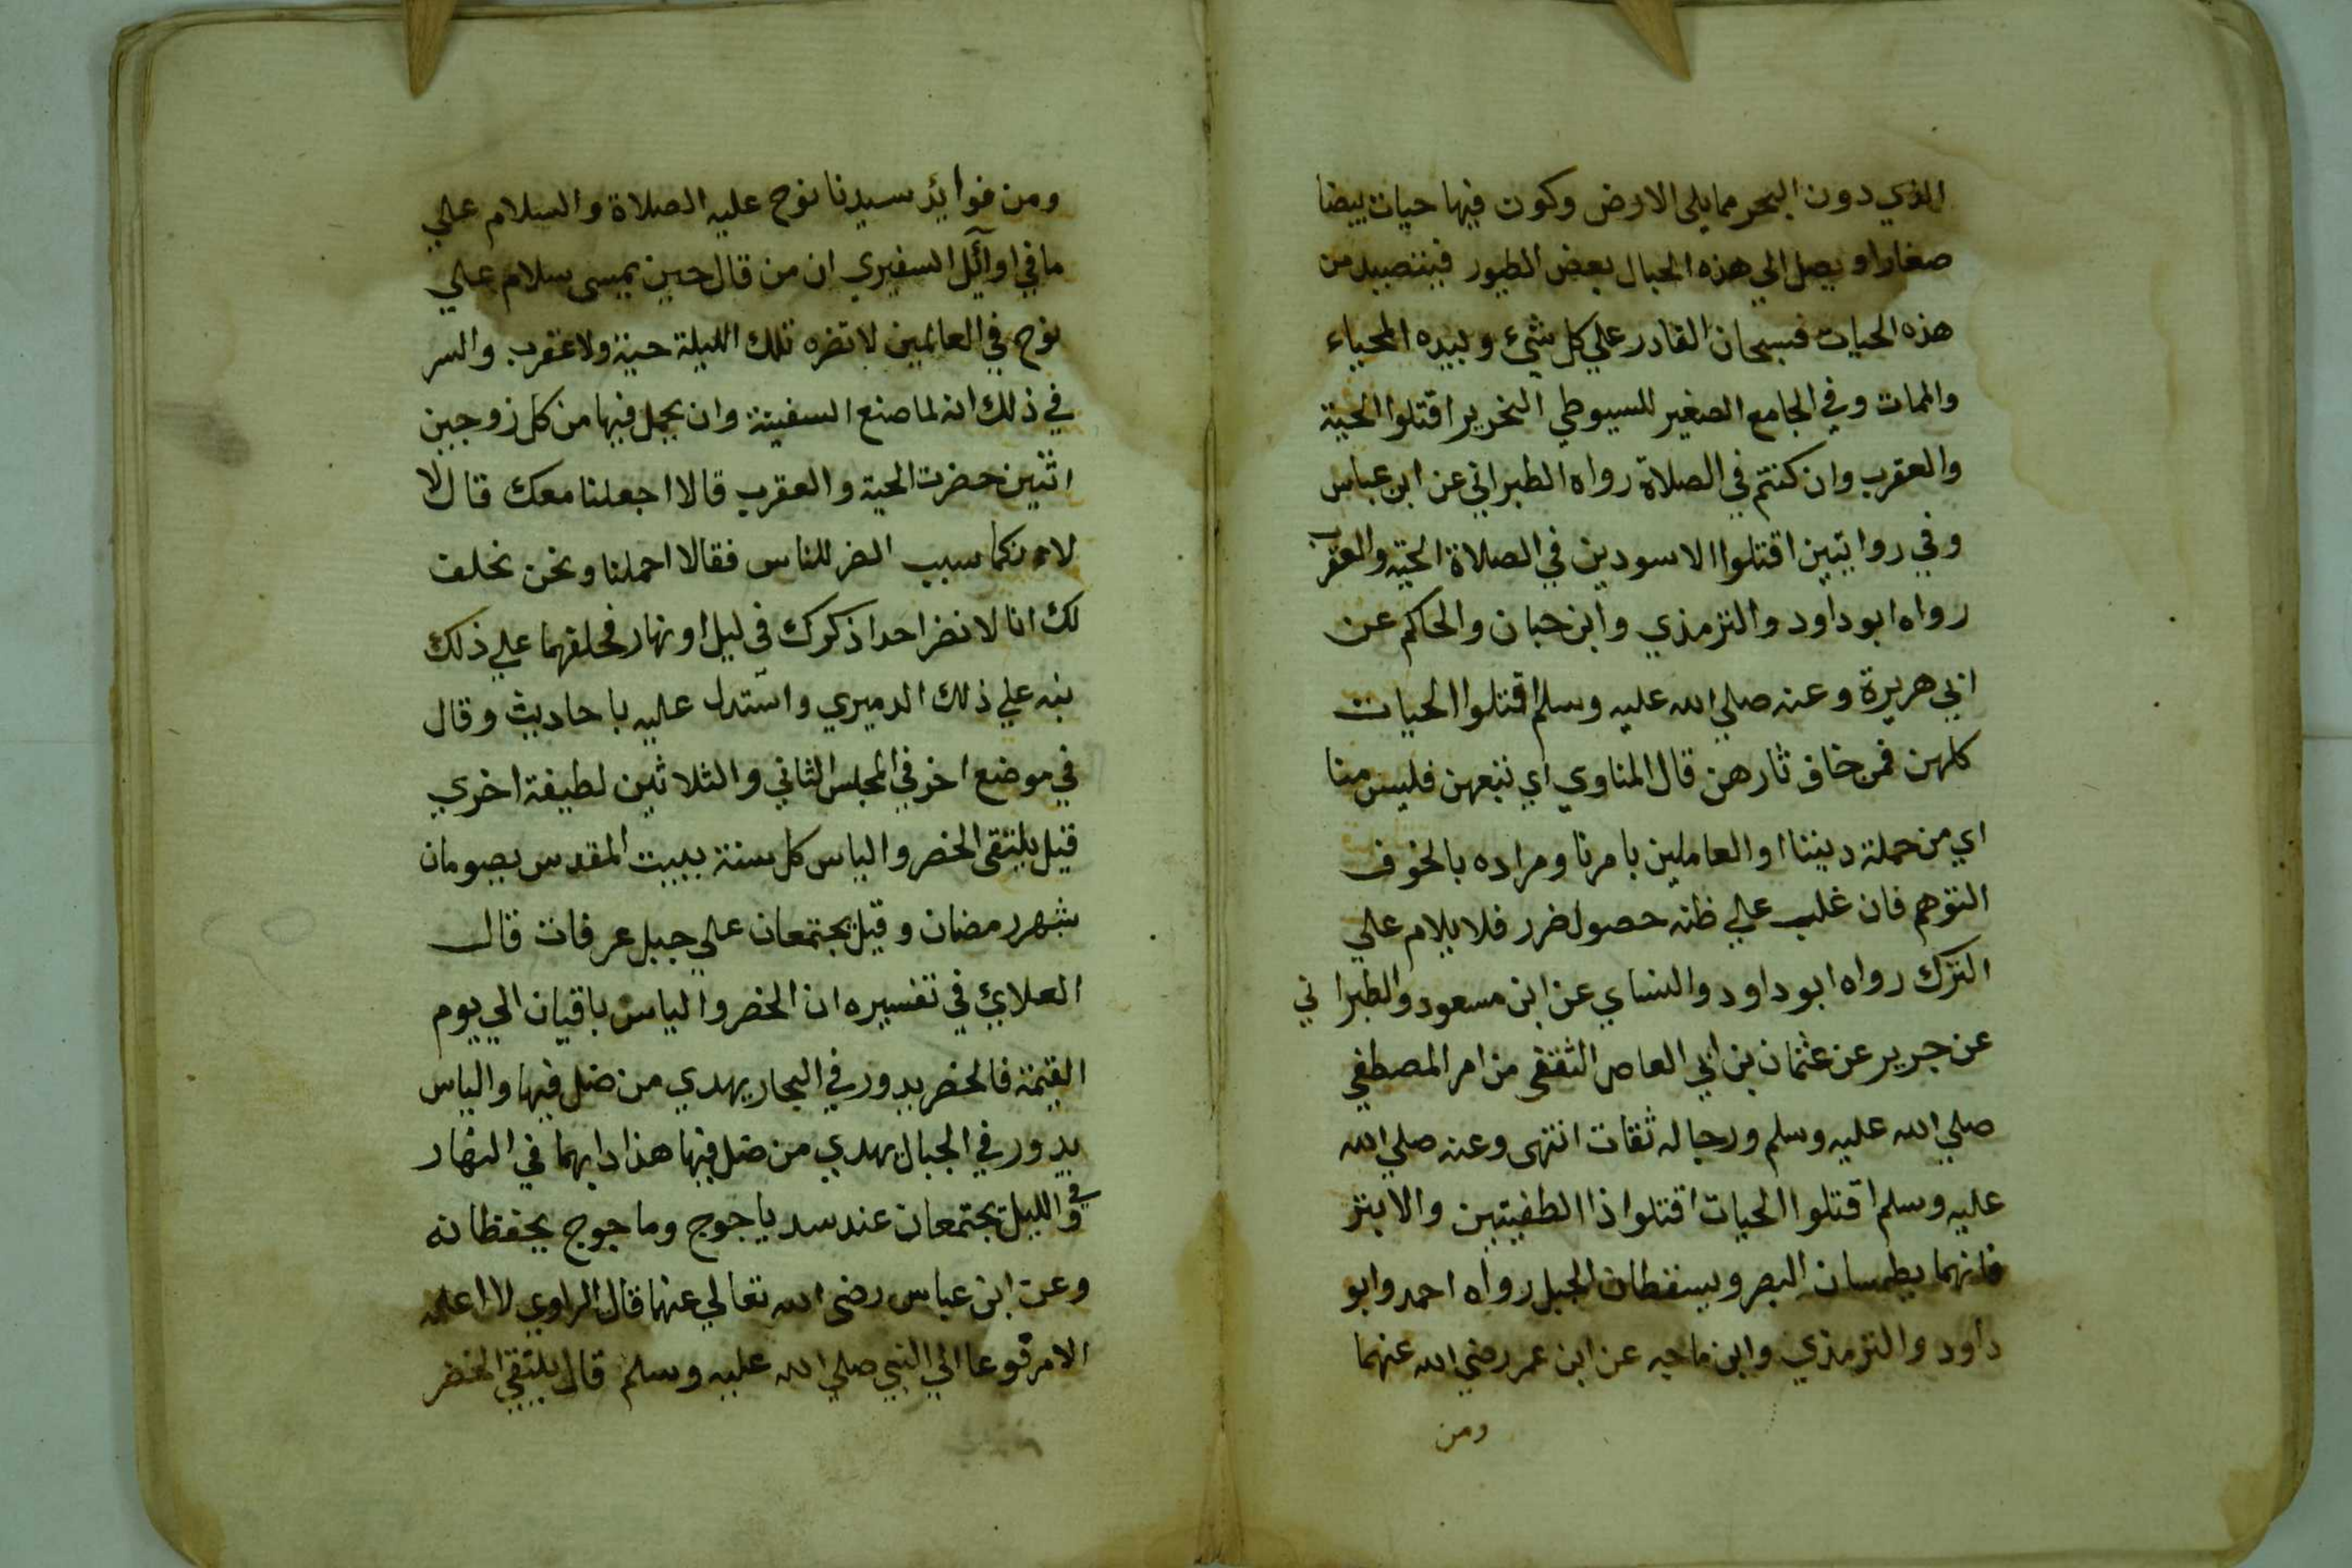 الذي دون البحر مما يلي الارض وكون فيها حيات بيضا
صغارا ويصل الي هذه الجبال بعض الطيور فيتصيد من
هذه الحيات فسبحان القادر علي كل شيء وبيده المحياء
والممات وفي الجامع الصغير للسيوطي النحرير اقتلوا الحية
والعقرب وان كنتم في الصلاة رواه الطبراني عن ابن عباس
وفي روايتين اقتلوا الاسودين في الصلاة الحية والعقرب
رواه ابو داود والترمذي وابن حبان والحاكم عن
ابي هريرة وعنه صلي الله عليه وسلم اقتلوا الحيات
كلهن فمن خاف ثارهن قال المناوي اي تبعهن فليس منا
اي من حملة ديننا او العاملين بامرنا ومراده بالخوف
التوهم فان غلب علي ظنه حصول ضرر فلا يلام علي
الترك رواه ابو داود والنساي عن ابن مسعود والطبراني
عن جرير عن عثمان بن ابي العاص الثقفي من امر المصطفي
صلي الله عليه وسلم ورجاله ثقات انتهى وعنه صلي الله
عليه وسلم اقتلوا الحيات اقتلوا ذا الطفيتين والابتر
فانهما يطمسان البصر ويسقطان الحبل رواه احمد وابو
داود والترمذي وابن ماجه عن ابن عمر رضي الله عنهما
ومن
ومن فوايد سيدنا نوح عليه الصلاة والسلام علي
ما في اوآئل السفيري ان من قال حين يمسى سلام علي
نوح في العالمين لا تضره تلك الليلة حية ولا عقرب والسر
في ذلك انه لما صنع السفينة وان يحمل فيها من كل زوجين
اثنين حضرت الحية والعقرب قالا اجعلنا معك قال لا
لاءنكما سبب الضر للناس فقالا احملنا ونحن نحلف
لك انا لا نضر احدا ذكرك في ليل او نهار فحلفهما علي ذلك
نبه علي ذلك الدميري واستدل عليه باحاديث وقال
في موضع اخر في المجلس الثاني والثلاثين لطيفة اخري
قيل يلتقى الخضر والياس كل سنة ببيت المقدس يصومان
شهر رمضان وقيل يجتمعان علي جبل عرفات قال
العلائ في تفسيره ان الخضر والياس باقيان الي يوم
القيمة فالخضر يدور في البحار يهدي من ضل فيها والياس
يدور في الجبال يهدي من ضل فيها هذا دابهما في النهار
وفي الليل يجتمعان عند سد ياجوج وماجوج يحفظانه
وعن ابن عباس رضي الله تعالي عنهما قال الراوي لا اعلمه
الا مرفوعا الي النبي صلي الله عليه وسلم قال يلتقي الخضر